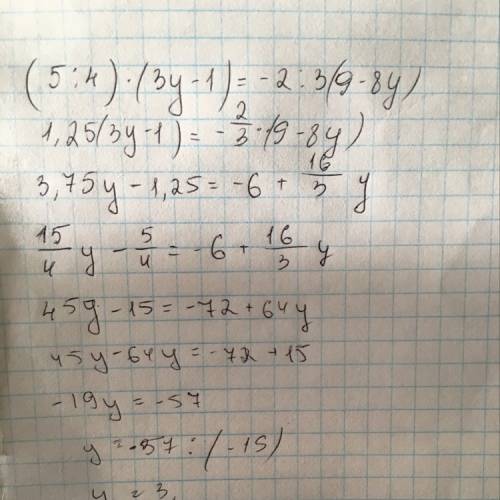 (5:4)·(3y-1)=-2:3(9-8y)
1,25(3y-1)=-2/3·(9-8y)
3,75y-1,25=-6+16/3 y
15/4 y - 5/4=-6+16/3 y
45y-15=-72+64y
45y-64y=-72+15
-19y=-57
y=-57:(-19)
y=3.